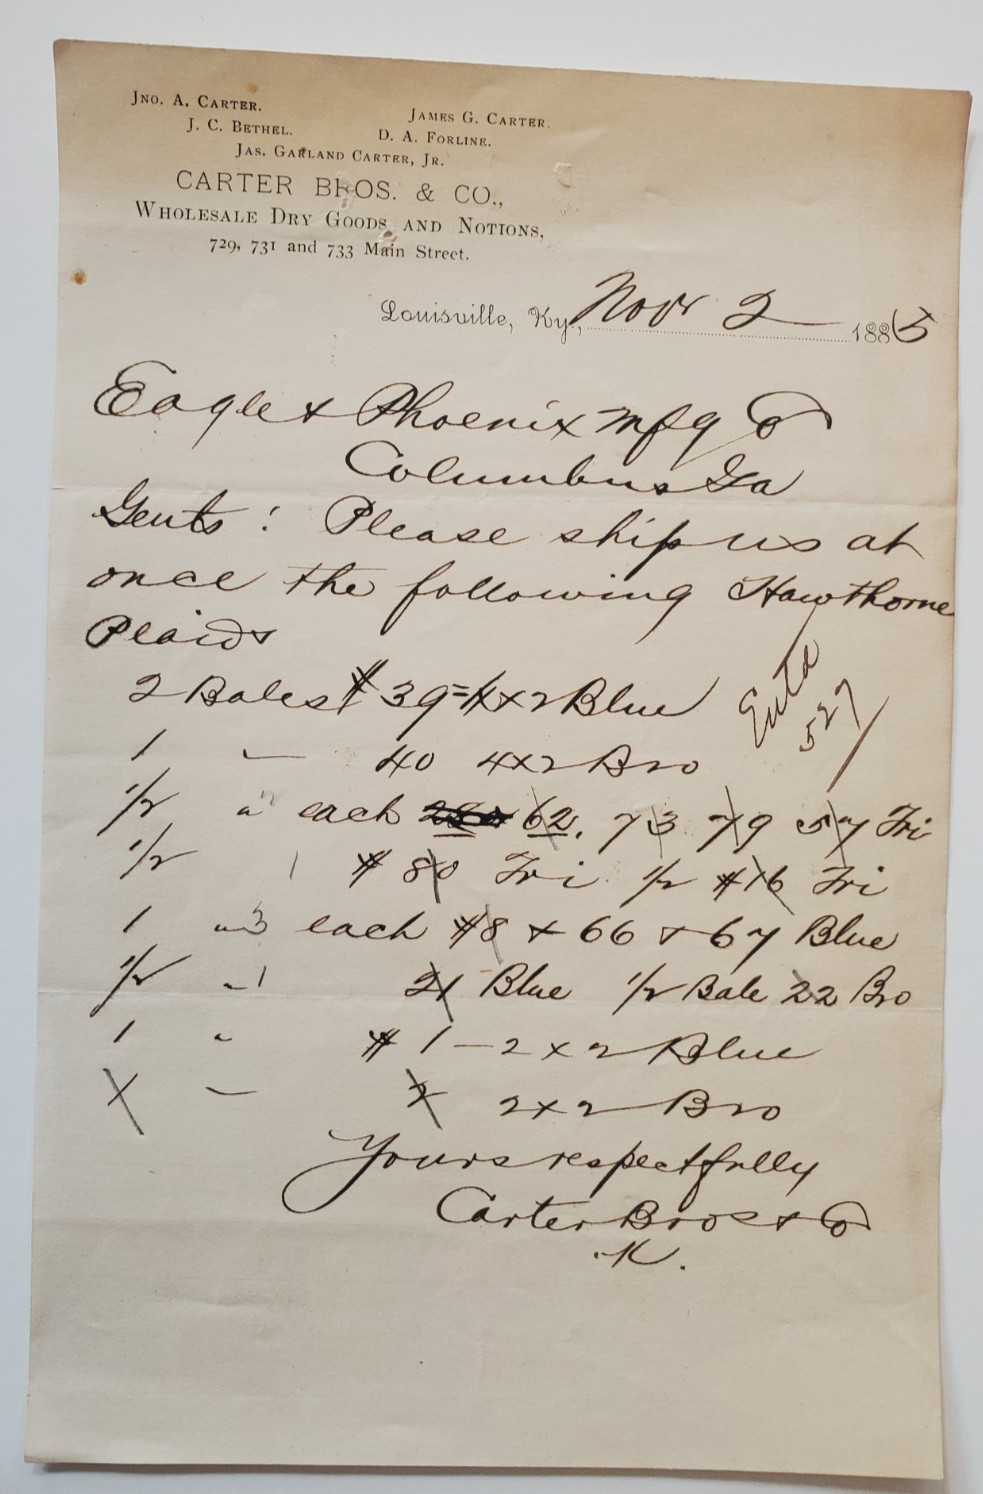 JNO. A. CARTER. JAMES G. CARTER.
J. C. BETHEL. D. A. FORLINE.
JAS. GARLAND CARTER, JR.
CARTER BROS. & CO.,
WHOLESALE DRY GOODS AND NOTIONS,
729, 731 and 733 Main Street.
Louisville, Ky., Nov 2 1885
Eagle & Phoenix Mfg Co
Columbus Ga
Gents : Please ship us at
once the following Hawthorne
Plaids
2 Bales # 39 = 4x2 Blue
Entd
527
1 " 40 4x2 Bro
1/2 " each 62. 73 79 57 Fri
1/2 # 80 Fri 1/2 #16 Fri
1 " 3 each #8 & 66 & 67 Blue
1/2 " 1 21 Blue 1/2 Bale 22 Bro
1 " # 1 - 2 x 2 Blue
1 " 2 2x2 Bro
Yours respectfully
Carter Bros & Co
K.